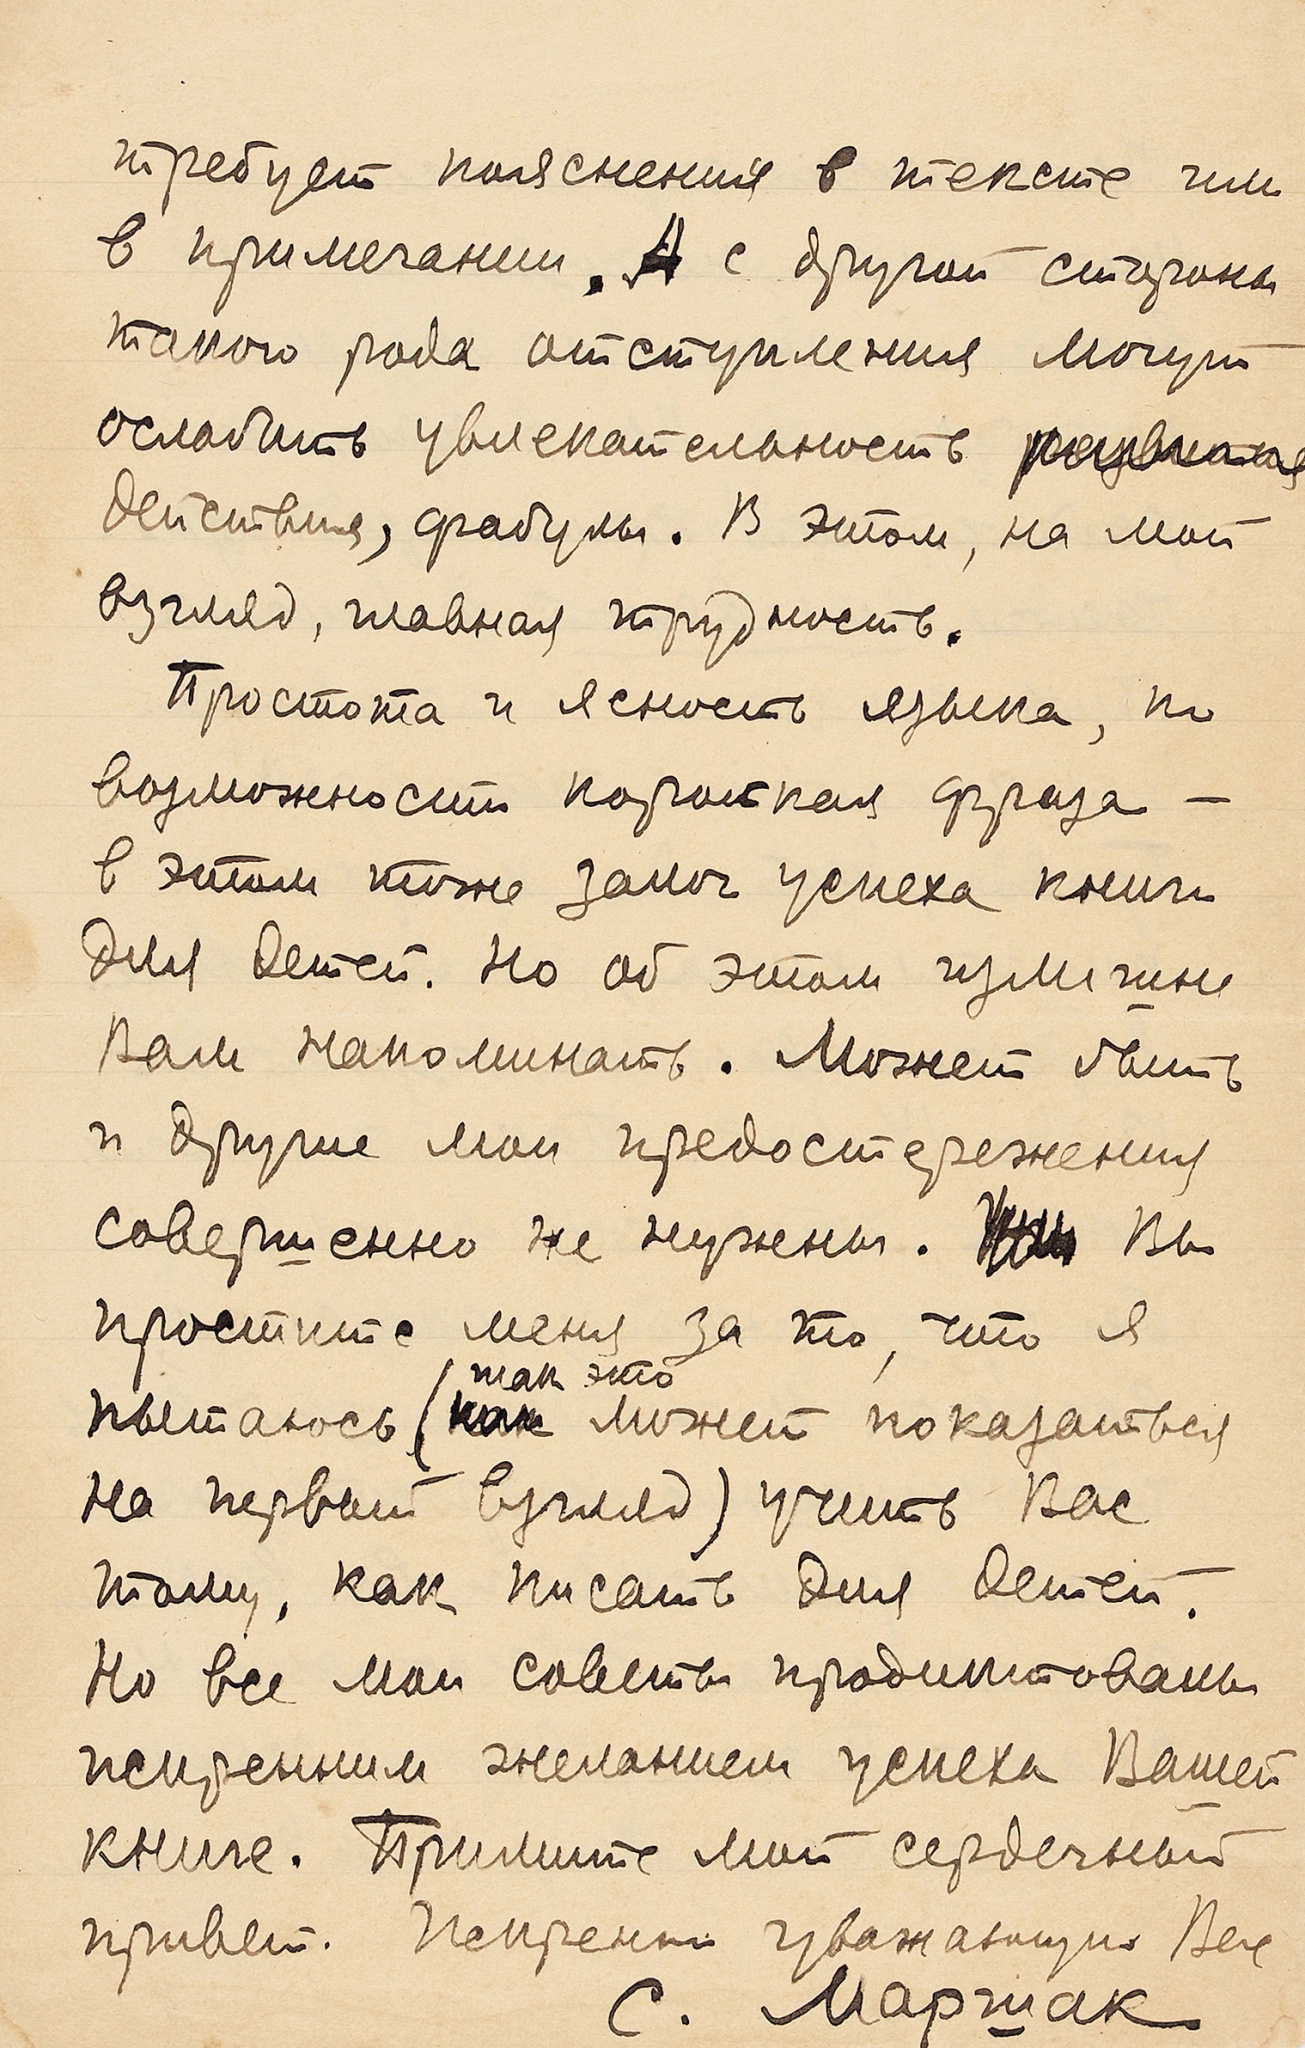 требует пояснения в тексте или
в примечании. А с другой стороны
такого рода отступления могут
ослабить увлекательность развития
действия, фабулы. В этом, на мой
взгляд, главная трудность.
Простота и ясность языка, по
возможности короткая фраза –
в этом тоже залог успеха книги
для детей. Но об этом излишне
Вам напоминать. Может быть
и другие мои предостережения
совершенно не нужны. Вы
простите меня за то, что я
так это
пытаюсь (как может показаться
на первый взгляд) учить Вас
тому, как писать для детей.
Но все мои советы продиктованы
искренним желанием успеха Вашей
книге. Примите мой сердечный
привет. Искренне уважающий Вас
С. Маршак